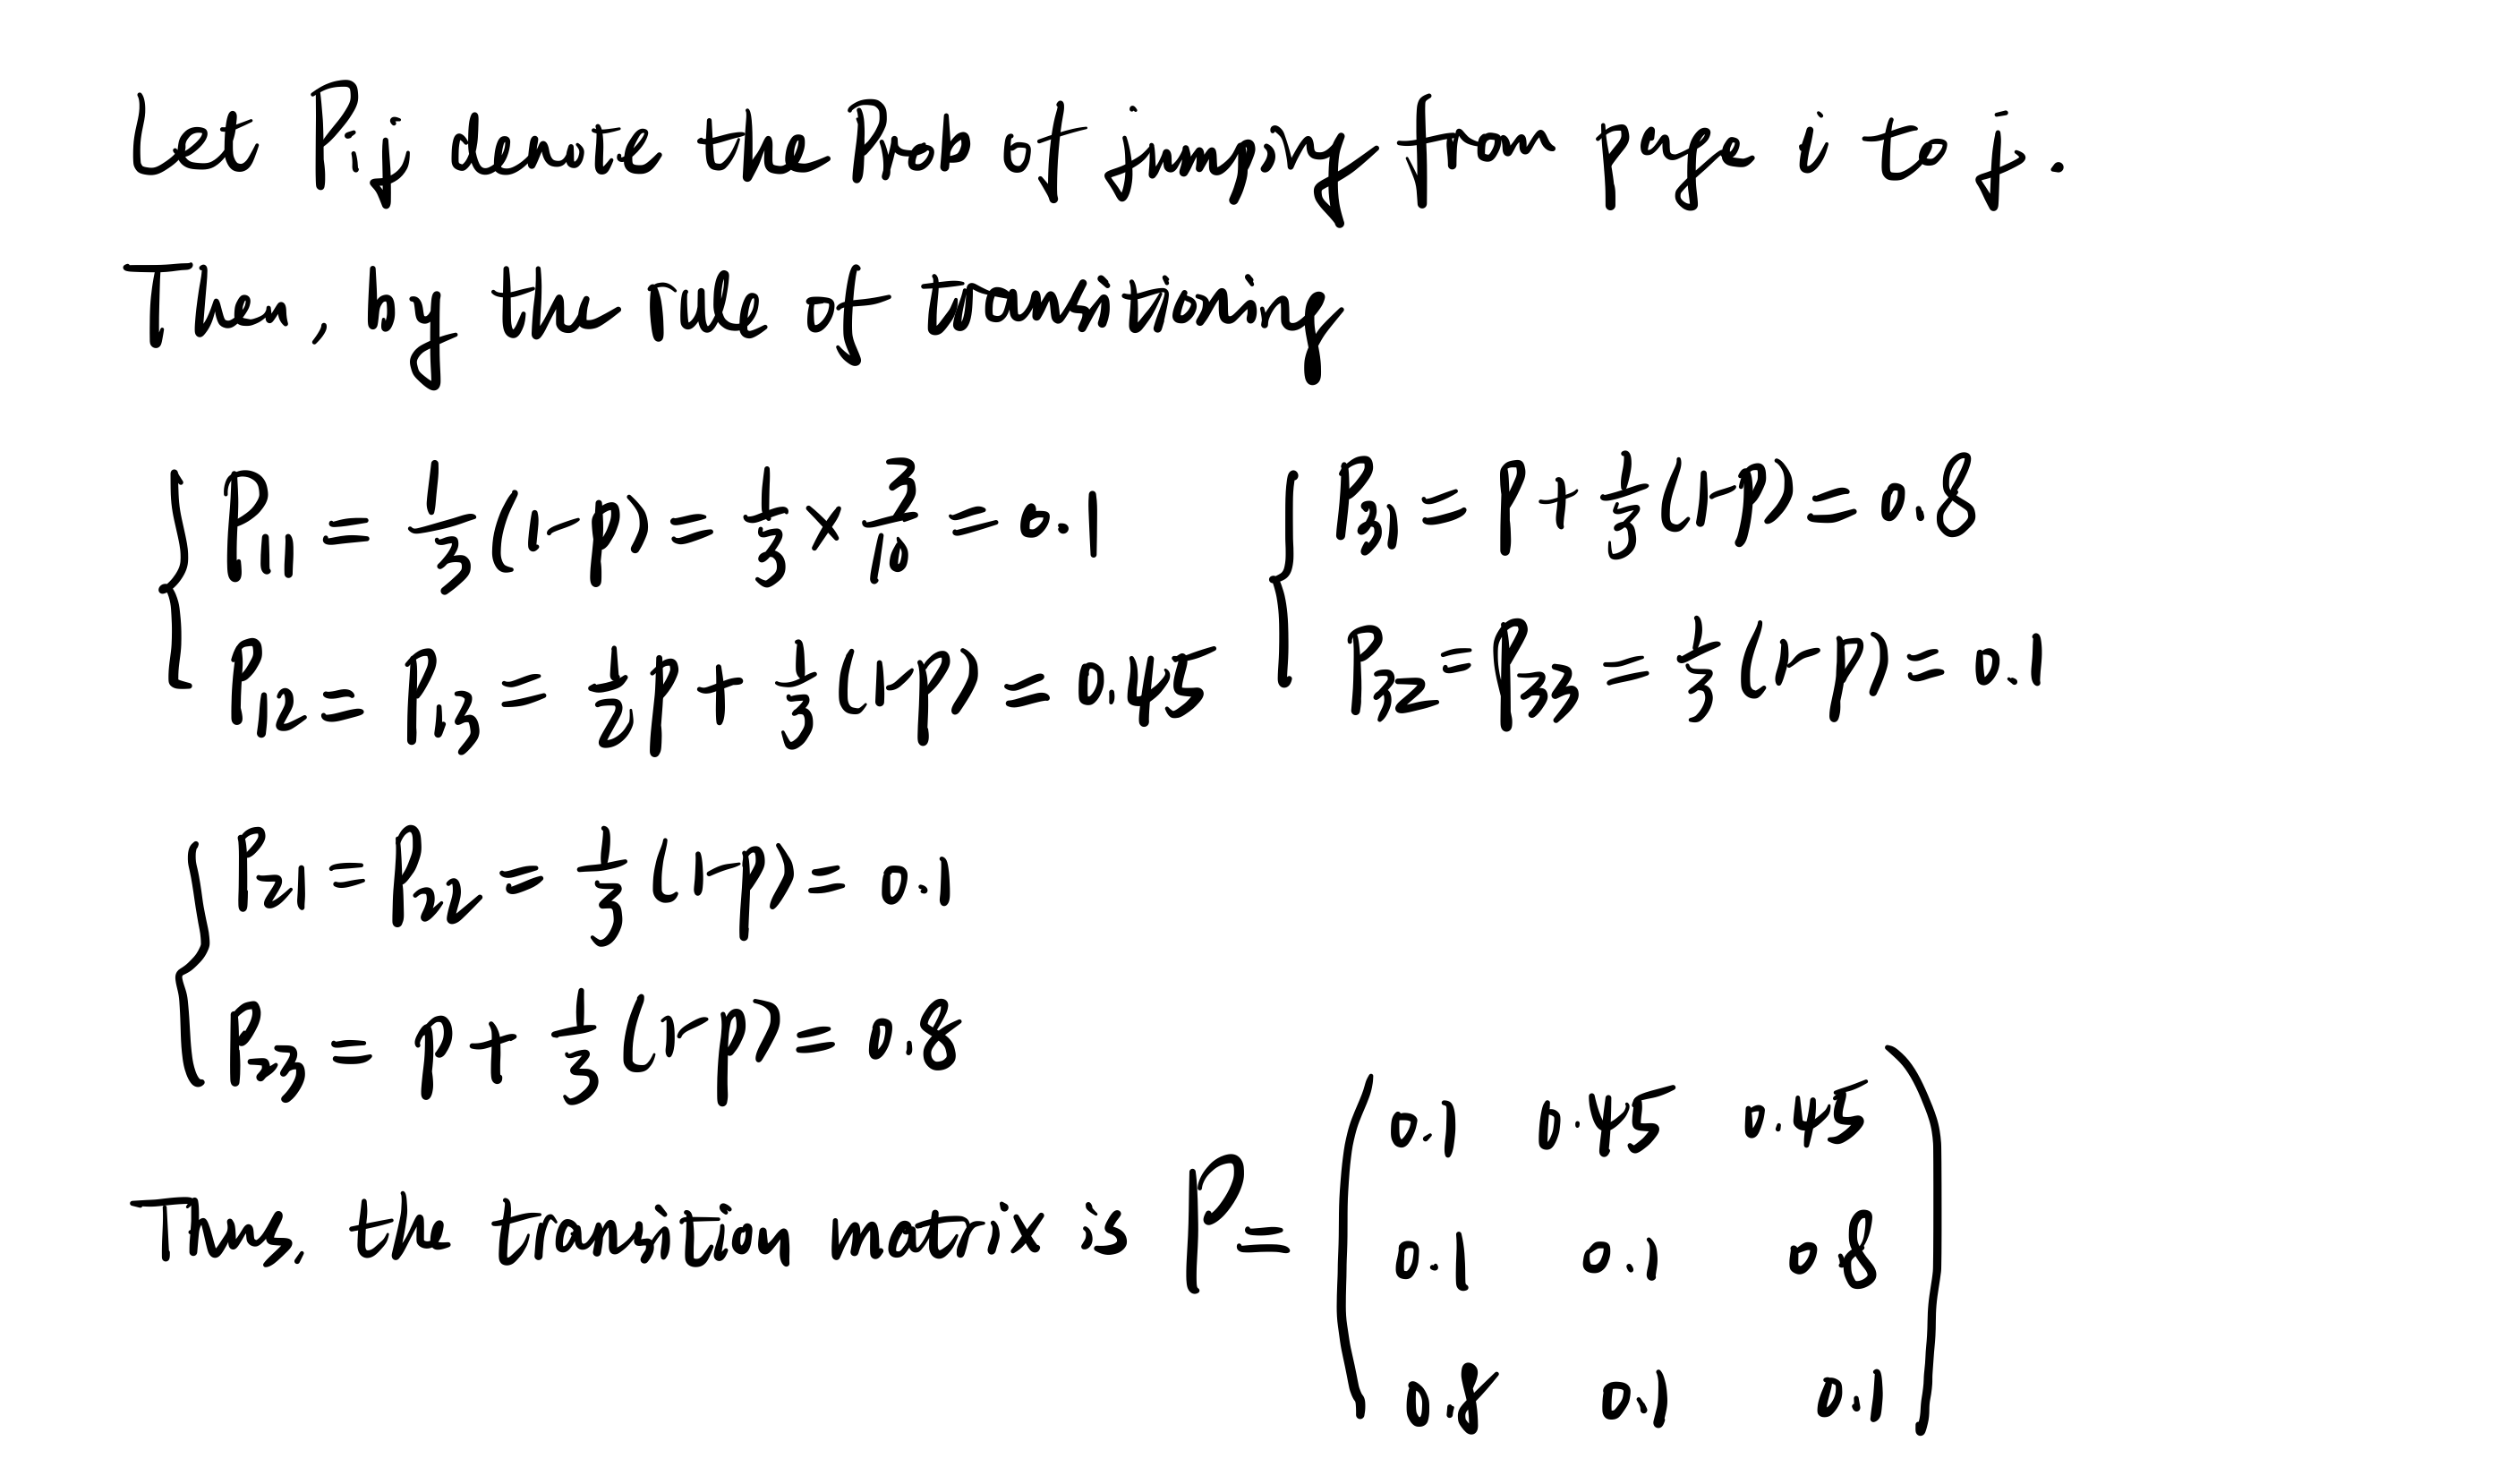 Let Pij denote the Prob of jumping from page i to j.
Then, by the rule of transitioning
{ P11 = 1/3 (1-p) = 1/3 × 3/10 = 0.1
P12 = P13 = 1/2 p + 1/3 (1-p) = 0.45
{ P31 = p + 1/3 (1-p) = 0.8
P32 = P33 = 1/3 (1-p) = 0.1
{ P21 = P22 = 1/3 (1-p) = 0.1
P23 = p + 1/3 (1-p) = 0.8
Thus, the transition matrix is P = ( 0.1 0.45 0.45
0.1 0.1 0.8
0.8 0.1 0.1 )